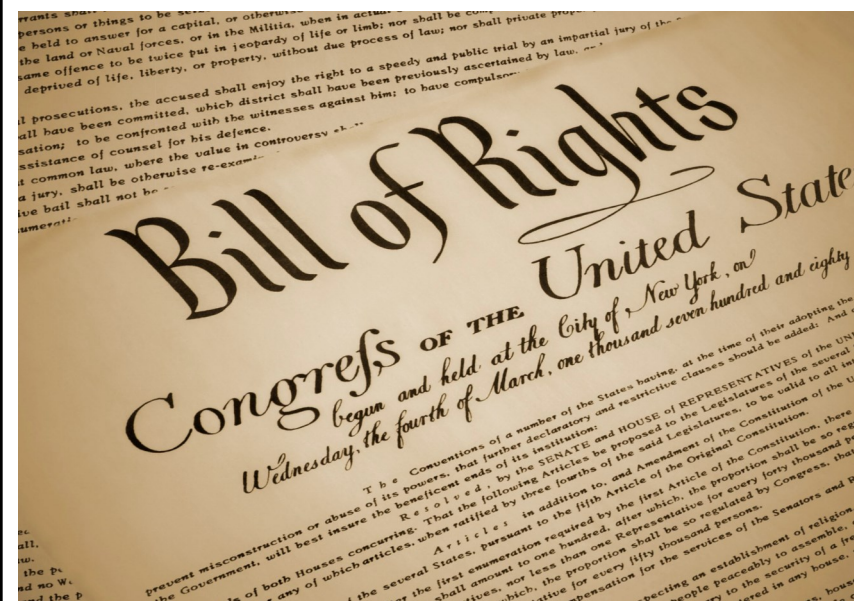 rrants shall
persons or things to be
e held to answer for a capital, or otherwise
the land or Naval forces, or in the Militia, when in actual
same offence to be twice put in jeopardy of life or limb; nor shall be
deprived of life, liberty, or property, without due process of law; nor shall private
l prosecutions, the accused shall enjoy the right to a speedy and public trial by an impartial jury of the
all have been committed, which district shall have been previously ascertained by law,
sation; to be confronted with the witnesses against him; to have compulsory
ssistance of counsel for his defence.
t common law, where the value in controversy shall
a jury, shall be otherwise re-exami
ive bail shall not be
umerati
Bill of Rights
Congreſs OF THE United State
begun and held at the City of New York, on
Wednesday, the fourth of March, one thousand seven hundred and eighty
The Conventions of a number of the States having, at the time of their adopting the
prevent misconstruction or abuse of its powers, that further declaratory and restrictive clauses should be added: And
the Government, will best insure the beneficent ends of its institution:
Resolved, by the SENATE and HOUSE of REPRESENTATIVES of the UNI
s of both Houses concurring. That the following Articles be proposed to the Legislatures of the several
any of which articles, when ratified by three fourths of the said Legislatures, to be valid to all int
Articles in addition to, and Amendment of the Constitution of the U
the several States, pursuant to the fifth Article of the Original Constitution.
the first enumeration required by the first Article of the Constitution, there
shall amount to one hundred, after which, the proportion shall be so reg
tives, nor less than one Representative for every forty thousand p
which, the proportion shall be so regulated by Congress, that
tative for every fifty thousand persons.
pensation for the services of the Senators and R
pecting an establishment of religion
people peaceably to assemble,
to the security of a fre
tered in any house,
all,
the
nd no
and the p